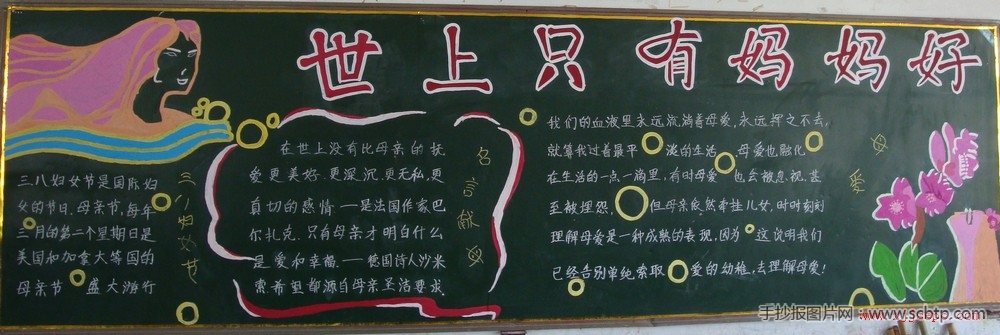 世上只有妈妈好
三八妇女节是国际妇
女的节日,母亲节,每年
三月的第二个星期日是
美国和加拿大等国的
母亲节 盛大游行
三八妇女节
在世上没有比母亲的抚
爱更美好.更深沉.更无私.更
真切的感情 — 是法国作家巴
尔扎克.只有母亲才明白什么
是爱和幸福.— 德国诗人沙米
索希里都源自母亲圣洁要求
名言献母
我们的血液里永远流淌着母爱,永远挥之不去,
就算我过着最平 淡的生活 ,母爱也融化
在生活的一点一滴里,有时母爱 也会被忽视,甚
至被埋怨, 但母亲依然牵挂儿女,时时刻刻
理解母爱是一种成熟的表现,因为 这说明我们
已经告别单纯索取 爱的幼稚,去理解母爱!
母爱
手抄报图片网 www.scbtp.com